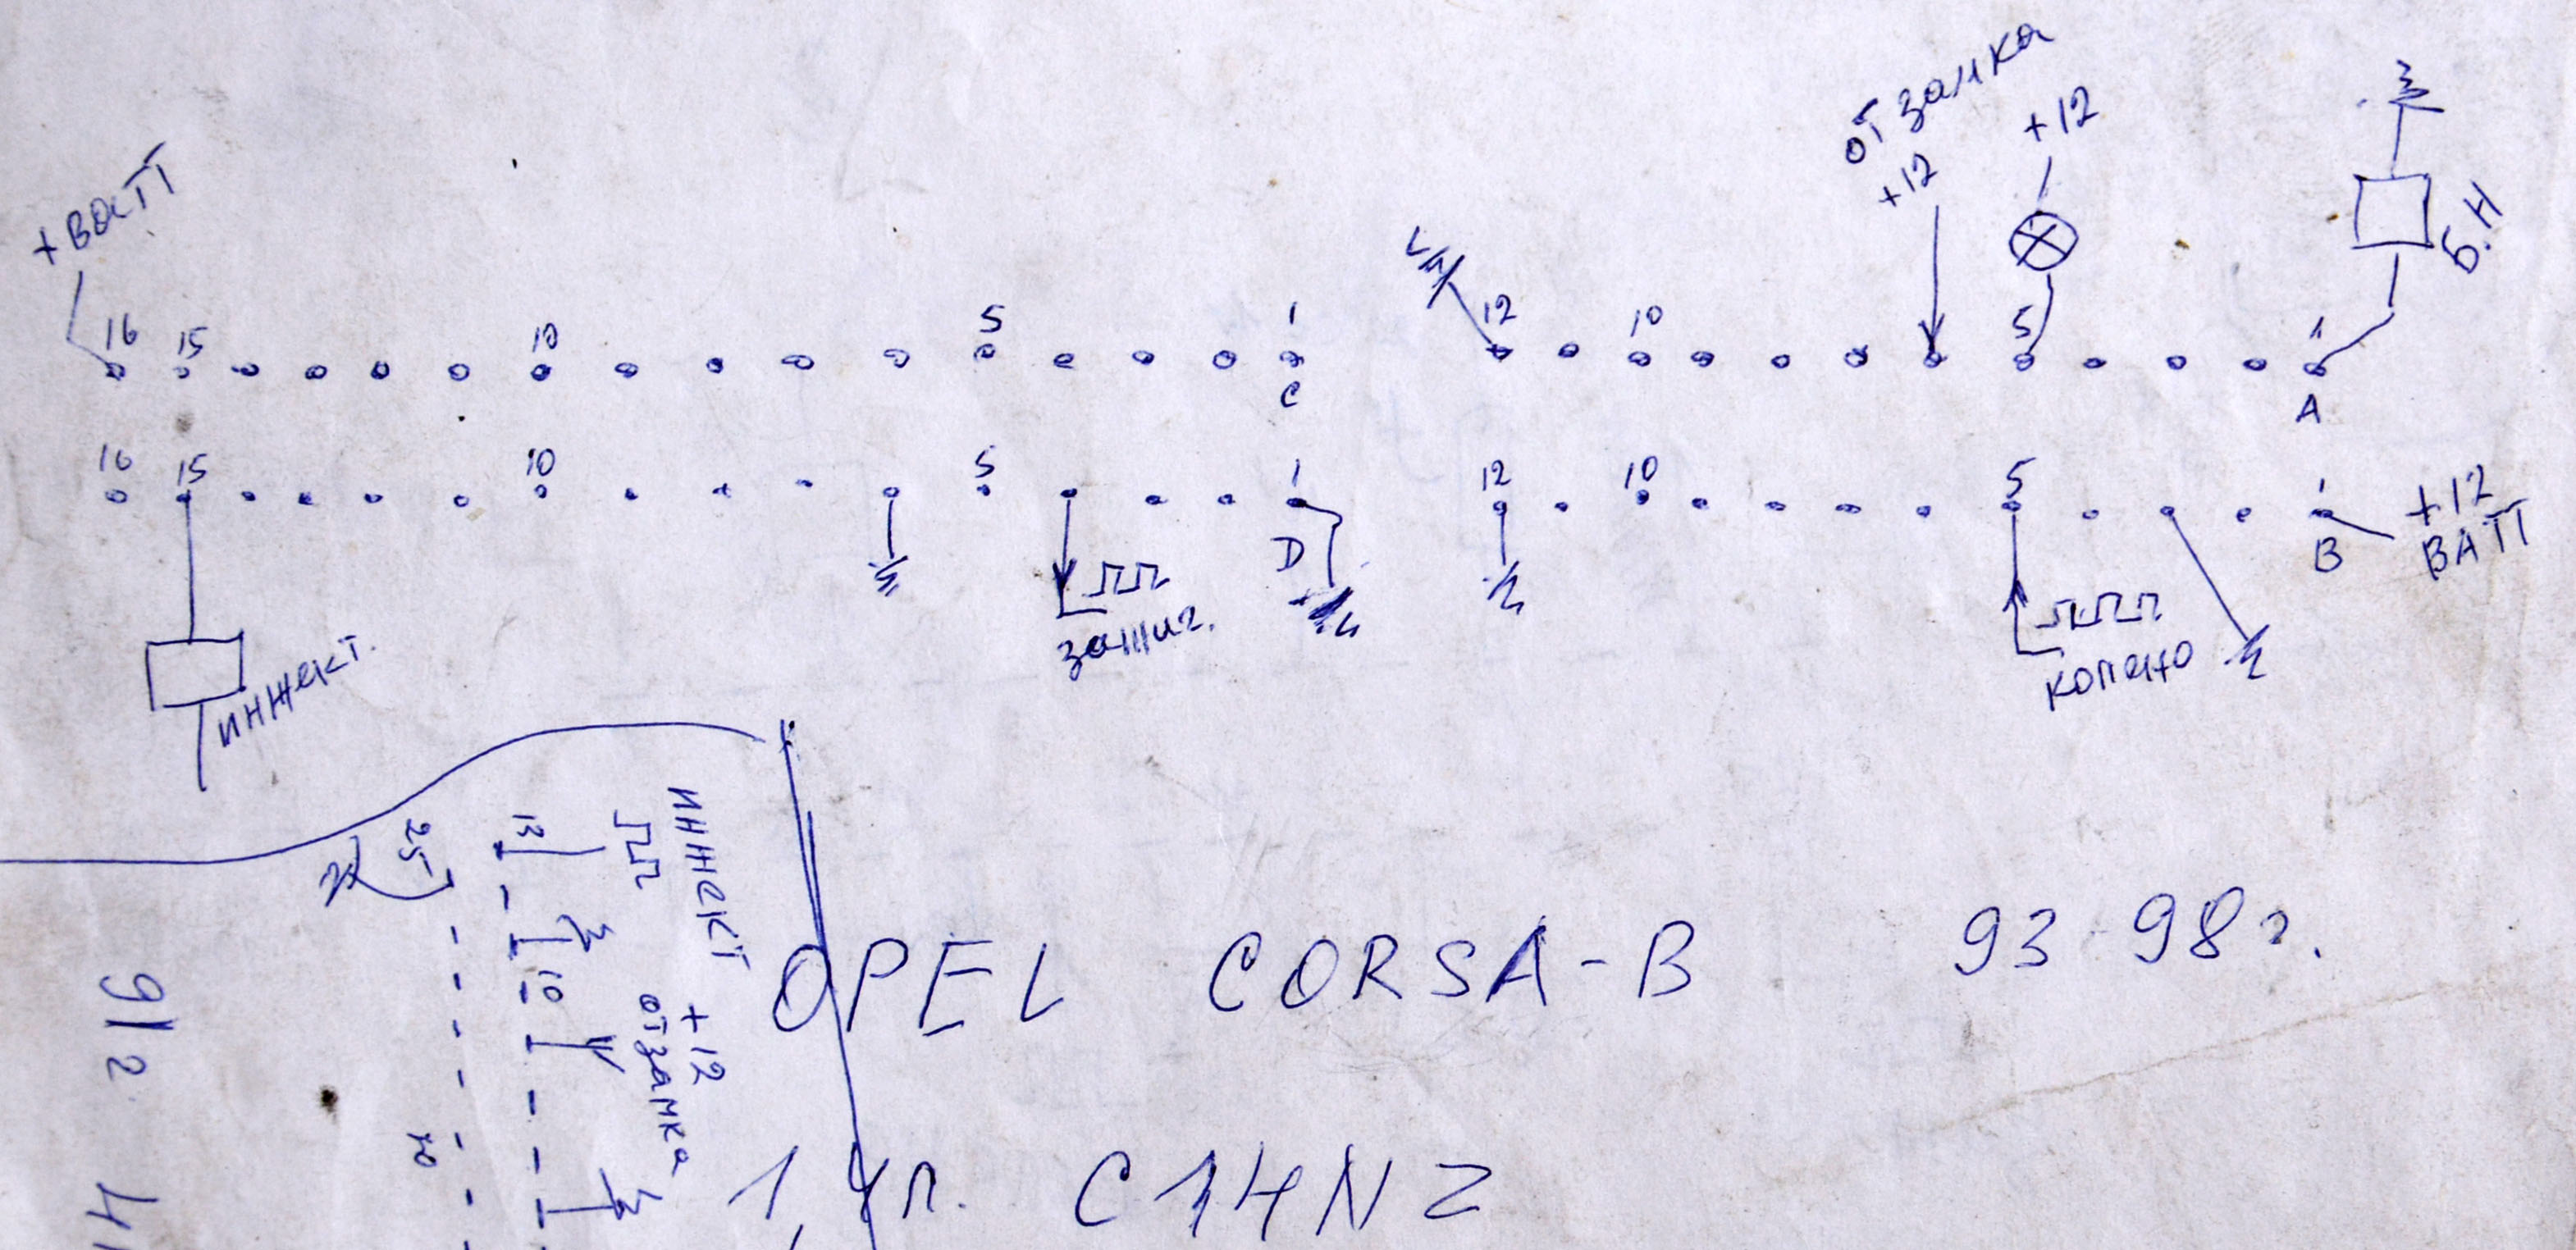 от замка
+12
+12
+ ватт
Б.Н
16 15 10 5 1
12 10 5 1
C
A
16 15 10 5 1
12 10 5 1
D
B
+12
ВАТТ
зашиг.
колено
инжект.
инжект
+12
от замка
25
13
10
20
91г
OPEL CORSA-B 93-98г.
1,4л. C14NZ